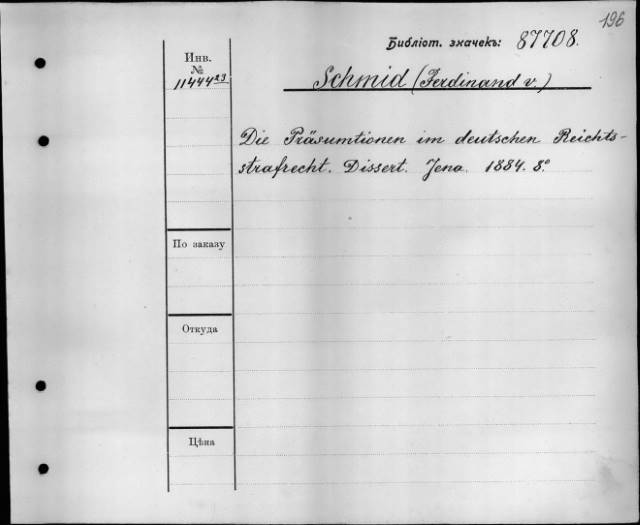 196
Библіот. значекъ: 87708.
Инв.
№
11444 23
Schmid (Ferdinand v.)
Die Präsumtionen im deutschen Reichts-
strafrecht. Dissert. Jena. 1884. 8º
По заказу
Откуда
Цѣна